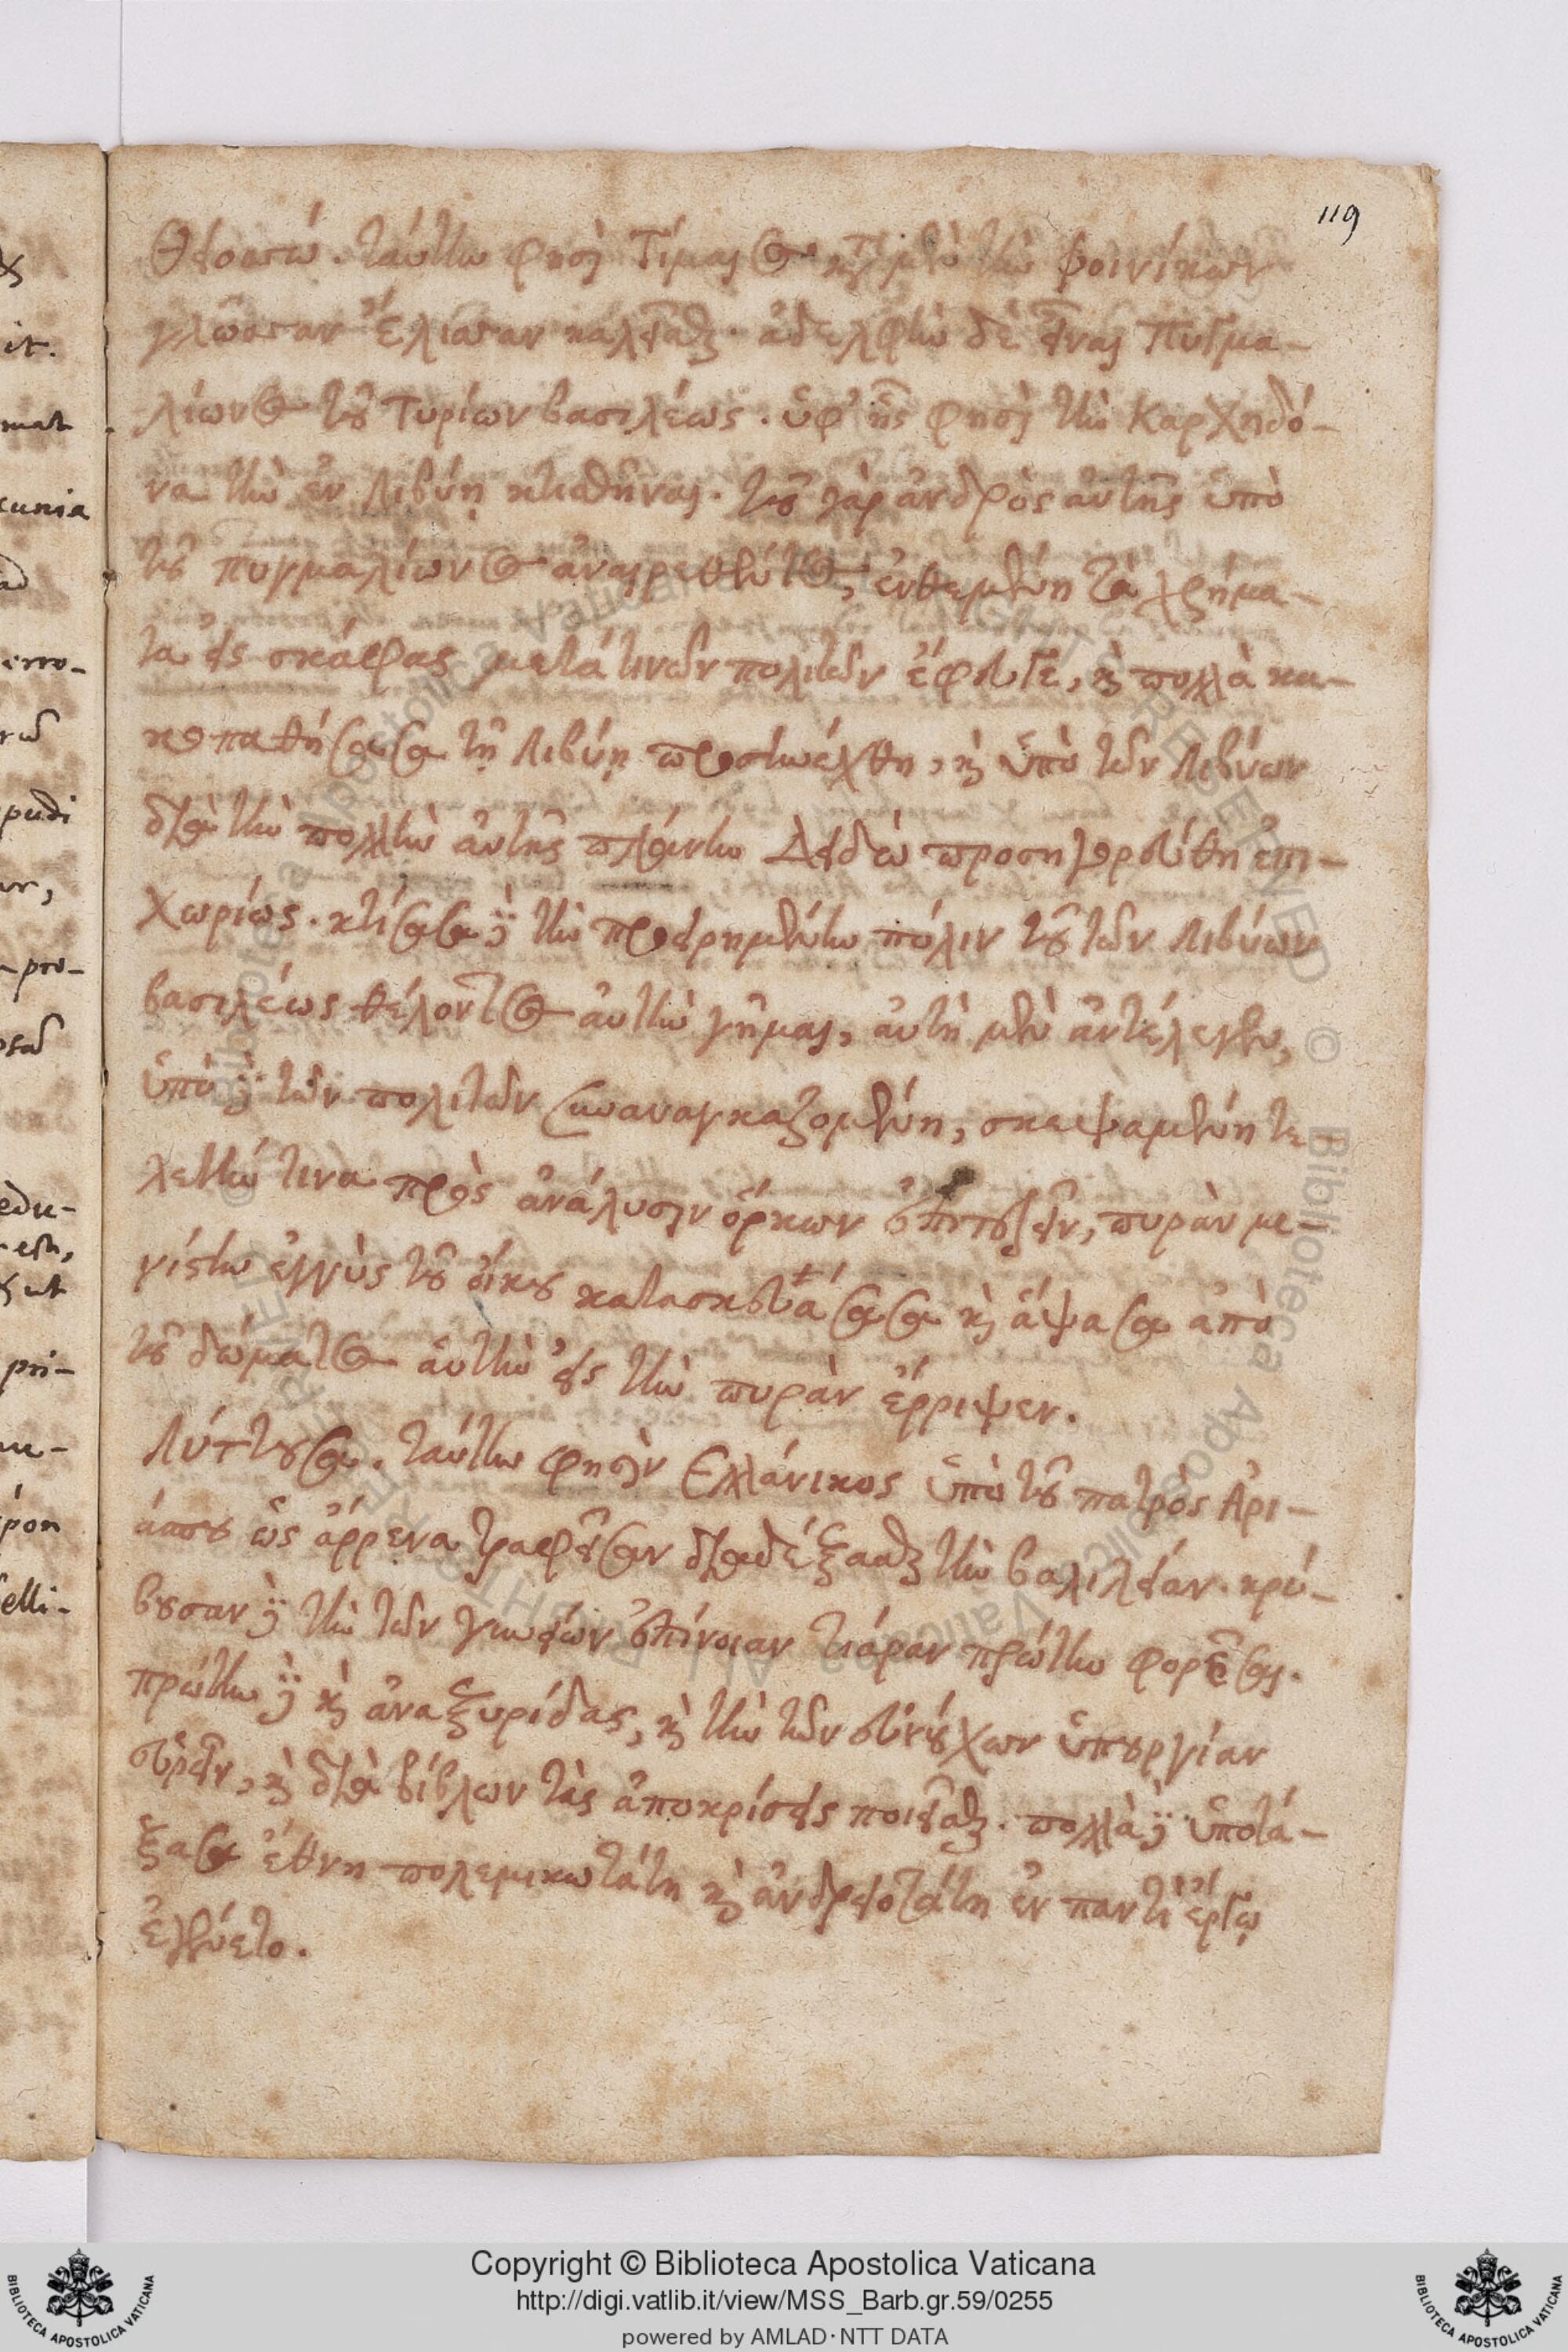 119
Θειοσσώ. ταύτην φησὶ Τίμαιος κατὰ μὲν τὴν φοινίκων
γλῶσσαν Ἐλίσσαν καλεῖσθαι. ἀδελφὴν δὲ εἶναι Πυγμα-
λίωνος τοῦ Τυρίων βασιλέως. ὑφ' ἧς φησὶ τὴν Καρχηδό-
να τὴν ἐν Λιβύῃ κτισθῆναι. τοῦ γὰρ ἀνδρὸς αὐτῆς ὑπὸ
τοῦ πυγμαλίωνος ἀναιρεθέντος, ἐνθεμένη τὰ χρήμα-
τα εἰς σκάφας μετά τινων πολιτῶν ἔφευγε, καὶ πολλὰ κα-
κοπαθήσασα τῇ Λιβύῃ προσηνέχθη, καὶ ὑπὸ τῶν Λιβύων
διὰ τὴν πολλὴν αὐτῆς πλάνην Δειδὼ προσηγορεύθη ἐπι-
χωρίως. κτίσασα δὲ τὴν προειρημένην πόλιν τοῦ τῶν Λιβύων
βασιλέως θέλοντος αὐτὴν γῆμαι, αὐτὴ μὲν ἀντέλεγεν,
ὑπὸ δὲ τῶν πολιτῶν συναναγκαζομένη, σκεψαμένη τε-
λετήν τινα πρὸς ἀνάλυσιν ὅρκων ἐπιτελεῖν, πυρὰν με-
γίστην ἐγγὺς τοῦ οἴκου κατασκευάσασα καὶ ἅψασα ἀπὸ
τοῦ δώματος αὑτὴν εἰς τὴν πυρὰν ἔρριψεν.
Λύτουσα. ταύτην φησὶν Ἑλλάνικος ὑπὸ τοῦ πατρός Ἀρι-
άσπου ὡς ἄρρενα τραφεῖσαν διαδέξασθαι τὴν βασιλείαν. κρύ-
βουσαν δὲ τὴν τῶν γυναικῶν ἐπίνοιαν τιάραν πρώτην φορέσαι.
πρώτην δὲ καὶ ἀναξυρίδας, καὶ τὴν τῶν εὐνούχων ὑπουργίαν
εὑρεῖν, καὶ διὰ βίβλων τὰς ἀποκρίσεις ποιεῖσθαι. πολλὰ δὲ ὑποτά-
ξασα ἔθνη πολεμικωτάτη καὶ ἀνδρειοτάτη ἐν παντὶ ἔργῳ
ἐγένετο.
Copyright © Biblioteca Apostolica Vaticana
http://digi.vatlib.it/view/MSS_Barb.gr.59/0255
powered by AMLAD·NTT DATA